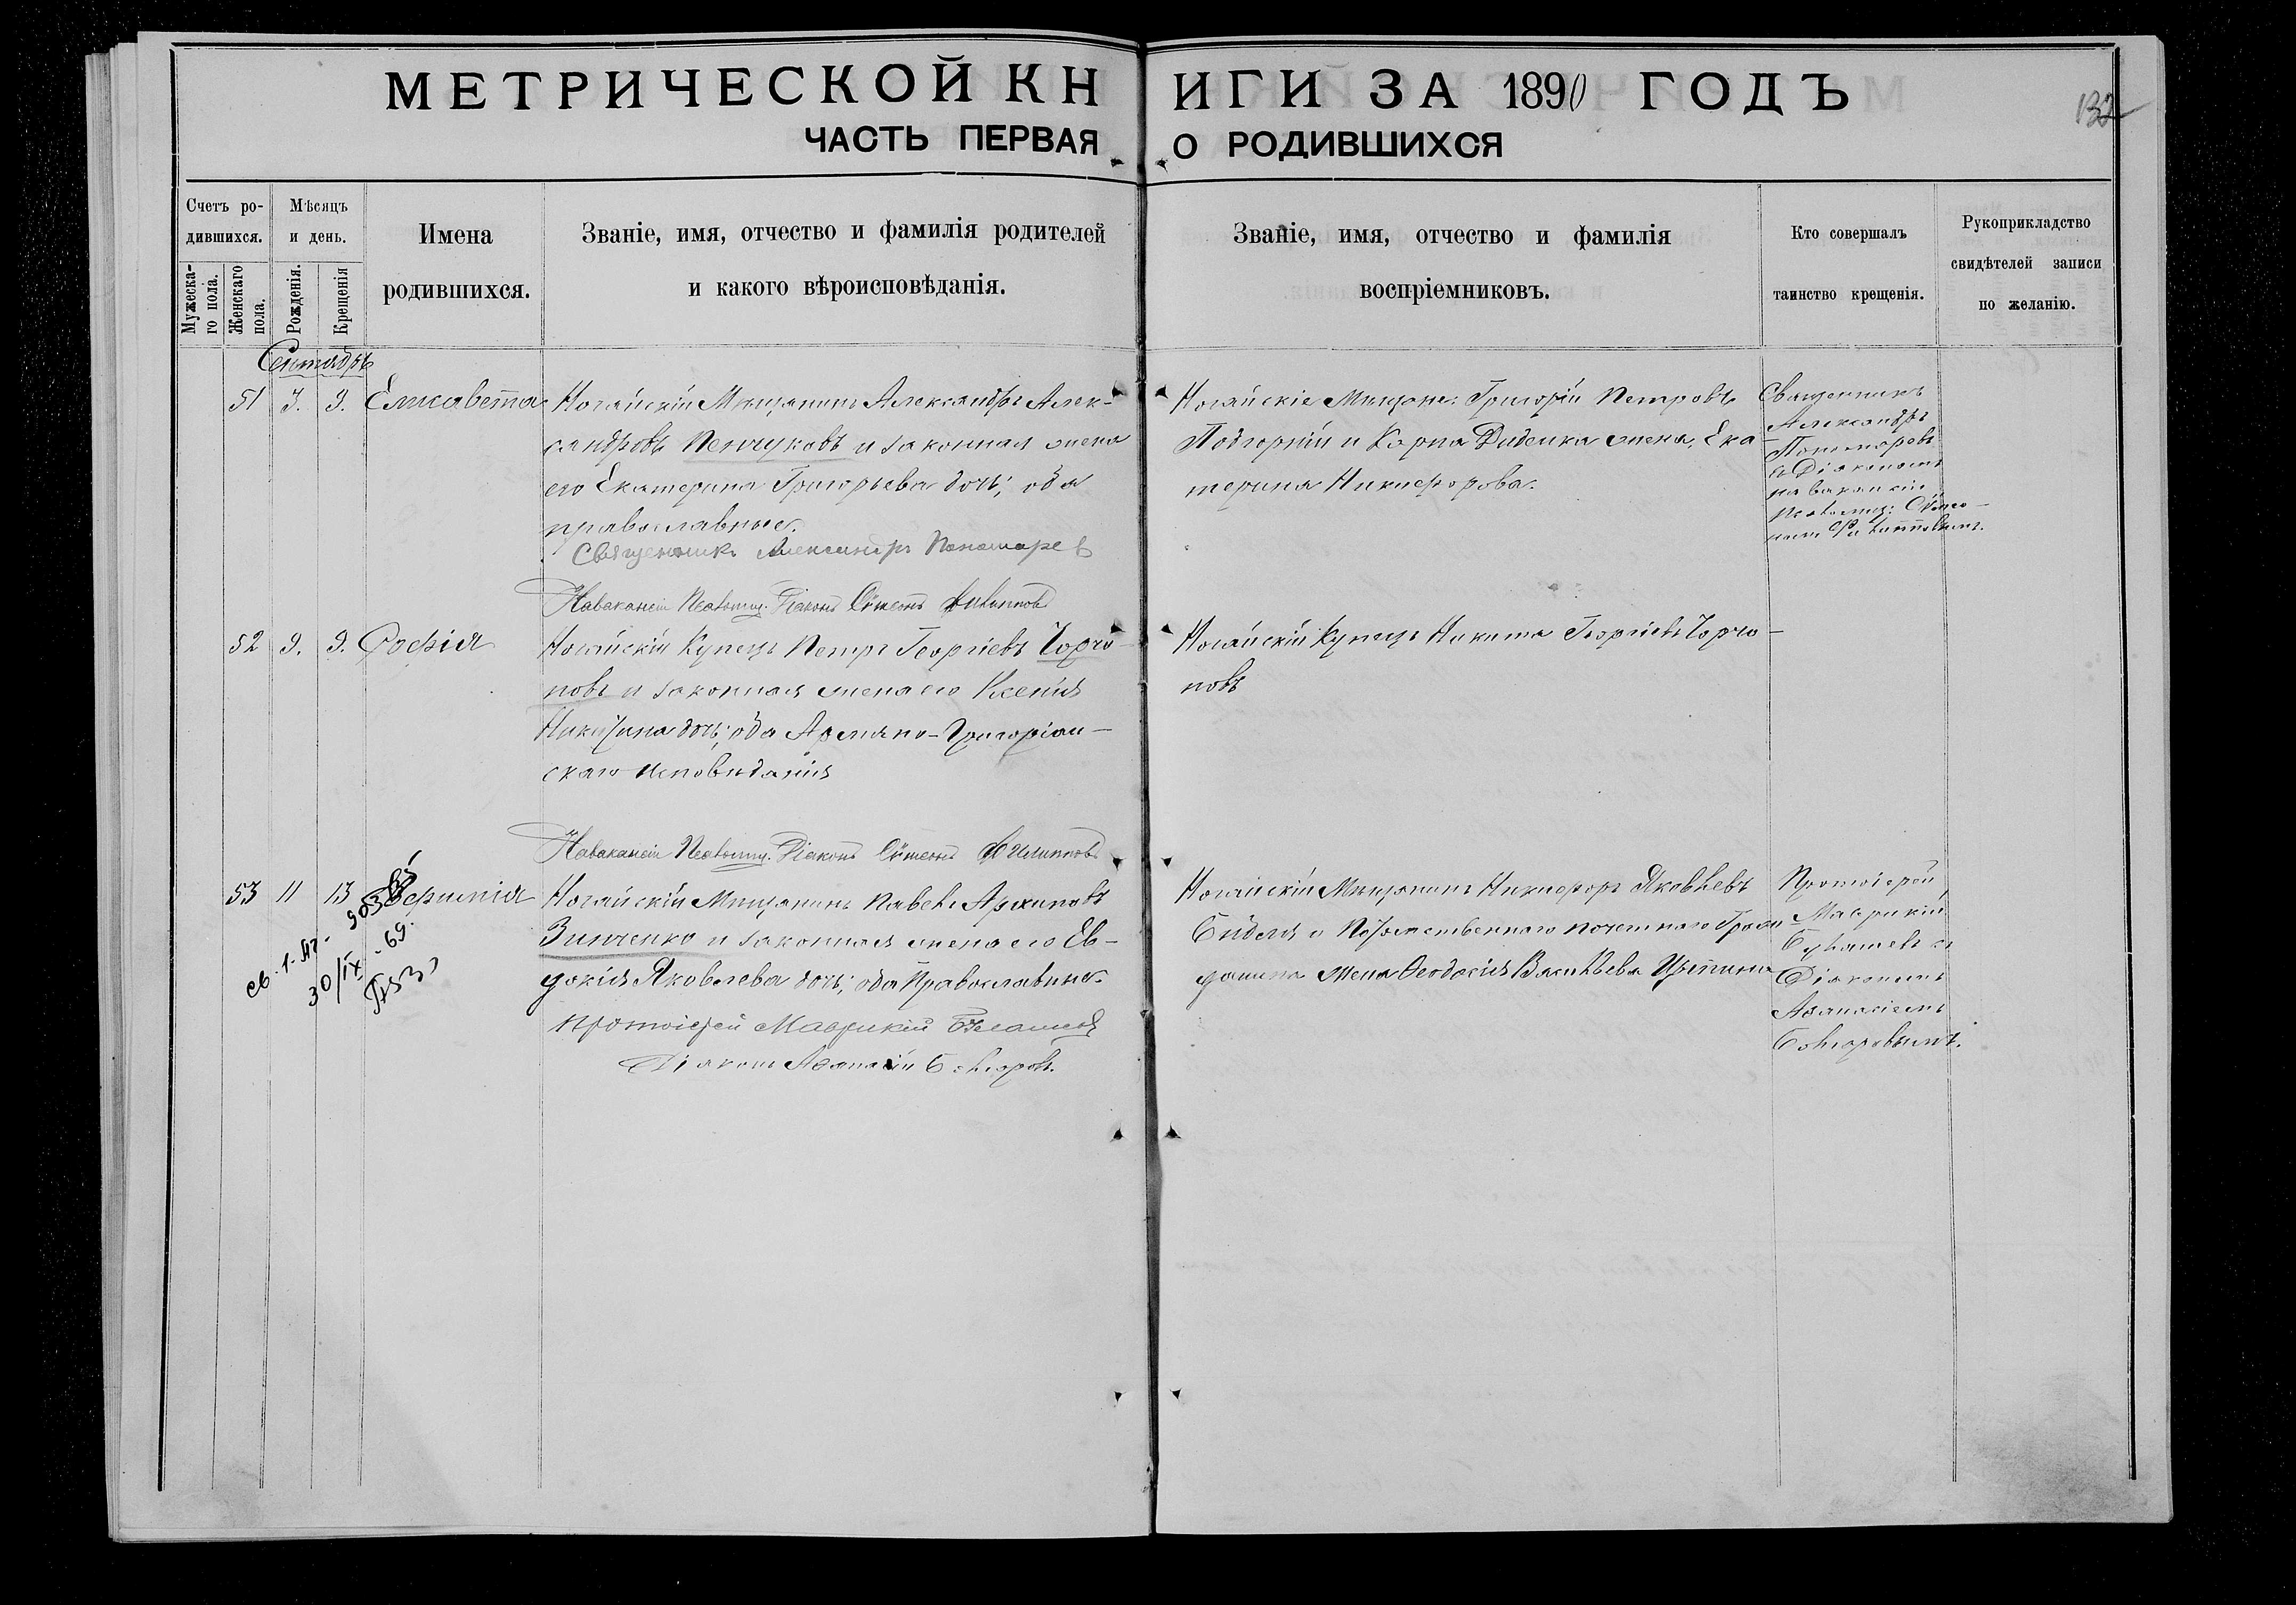 МЕТРИЧЕСКОЙ КНИГИ ЗА 1890 ГОДЪ
ЧАСТЬ ПЕРВАЯ О РОДИВШИХСЯ
132
Счетъ ро-
дившихся.
Мужеска-
го пола.
Женскаго
пола.
Мѣсяцъ
и день.
Рожденія.
Крещенія
Имена
родившихся.
Званіе, имя, отчество и фамилія родителей
и какого вѣроисповѣданія.
Званіе, имя, отчество и фамилія
воспріемниковъ.
Кто совершалъ
таинство крещенія.
Рукоприкладство
свидѣтелей записи
по желанію.
Сентябрь
51 9. Елисавета
Ногайскій Мѣщанинъ Александръ Алек-
сандровъ Пенчуковъ и законная жена
его Екатерина Григорьева дочь; оба
православные.
Священникъ Александръ Пономаревъ
На вакансіи Псаломщ. Діаконъ Сѵмеонъ Филипповъ
Ногайскіе Мѣщане: Григорій Петровъ
Подгорній и Карпа Диденка жена, Ека-
терина Никифорова.
Священникъ
Александръ
Пономаревъ
съ Діакономъ
на вакансіи
Псаломщ: Сѵмео-
номъ Филипповымъ.
52 9. 9. Софія
Ногайскій Купецъ Петръ Георгіевъ Чорчо-
повъ и законная жена его Ксенія
Никитина дочь; оба Армяно-Григоріан-
скаго исповѣданія
На вакансіи Псаломщ. Діаконъ Сѵмеонъ Филипповъ
Ногайскій Купецъ Никита Георгіевъ Чорчо-
повъ
53 11 13
св. 1-
30/IX - 69.
Ногайскій Мѣщанинъ Павелъ Архиповъ
Зинченко и законная жена его Ев-
докія Яковлева дочь; оба Православные.
Протоіерей Маврикій
Діаконъ Аѳанасій
Ногайскій Мѣщанинъ Никифоръ Яковлевъ
и Потомственнаго почетнаго Граж-
данина жена Ѳеодосія Васильева
Протоіерей
Маврикій
съ
Діакономъ
Аѳанасіемъ